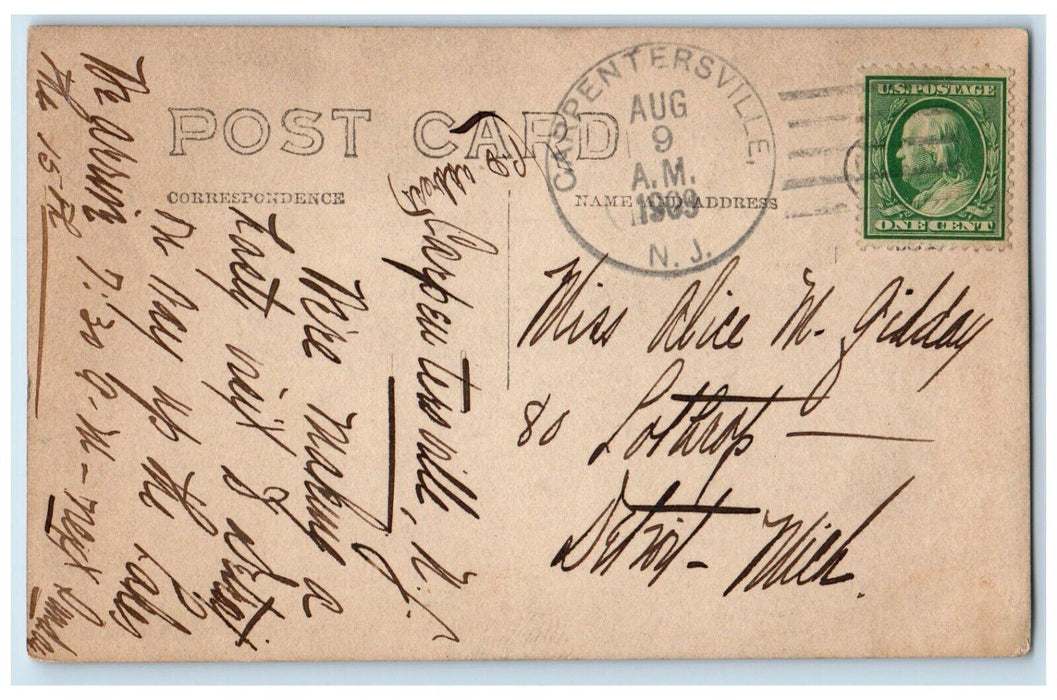 POST CARD
CORRESPONDENCE
NAME AND ADDRESS
CARPENTERSVILLE,
AUG
9
A.M.
1909
N. J.
U.S. POSTAGE
ONE CENT
Miss Alice M. Gilday
80 Lothrop
Detroit - Mich.
Carpentersville, N. J.
We're making a
hasty visit of Detroit
on way up the Lakes
7:30 P.M. - next Sunday
the 15th